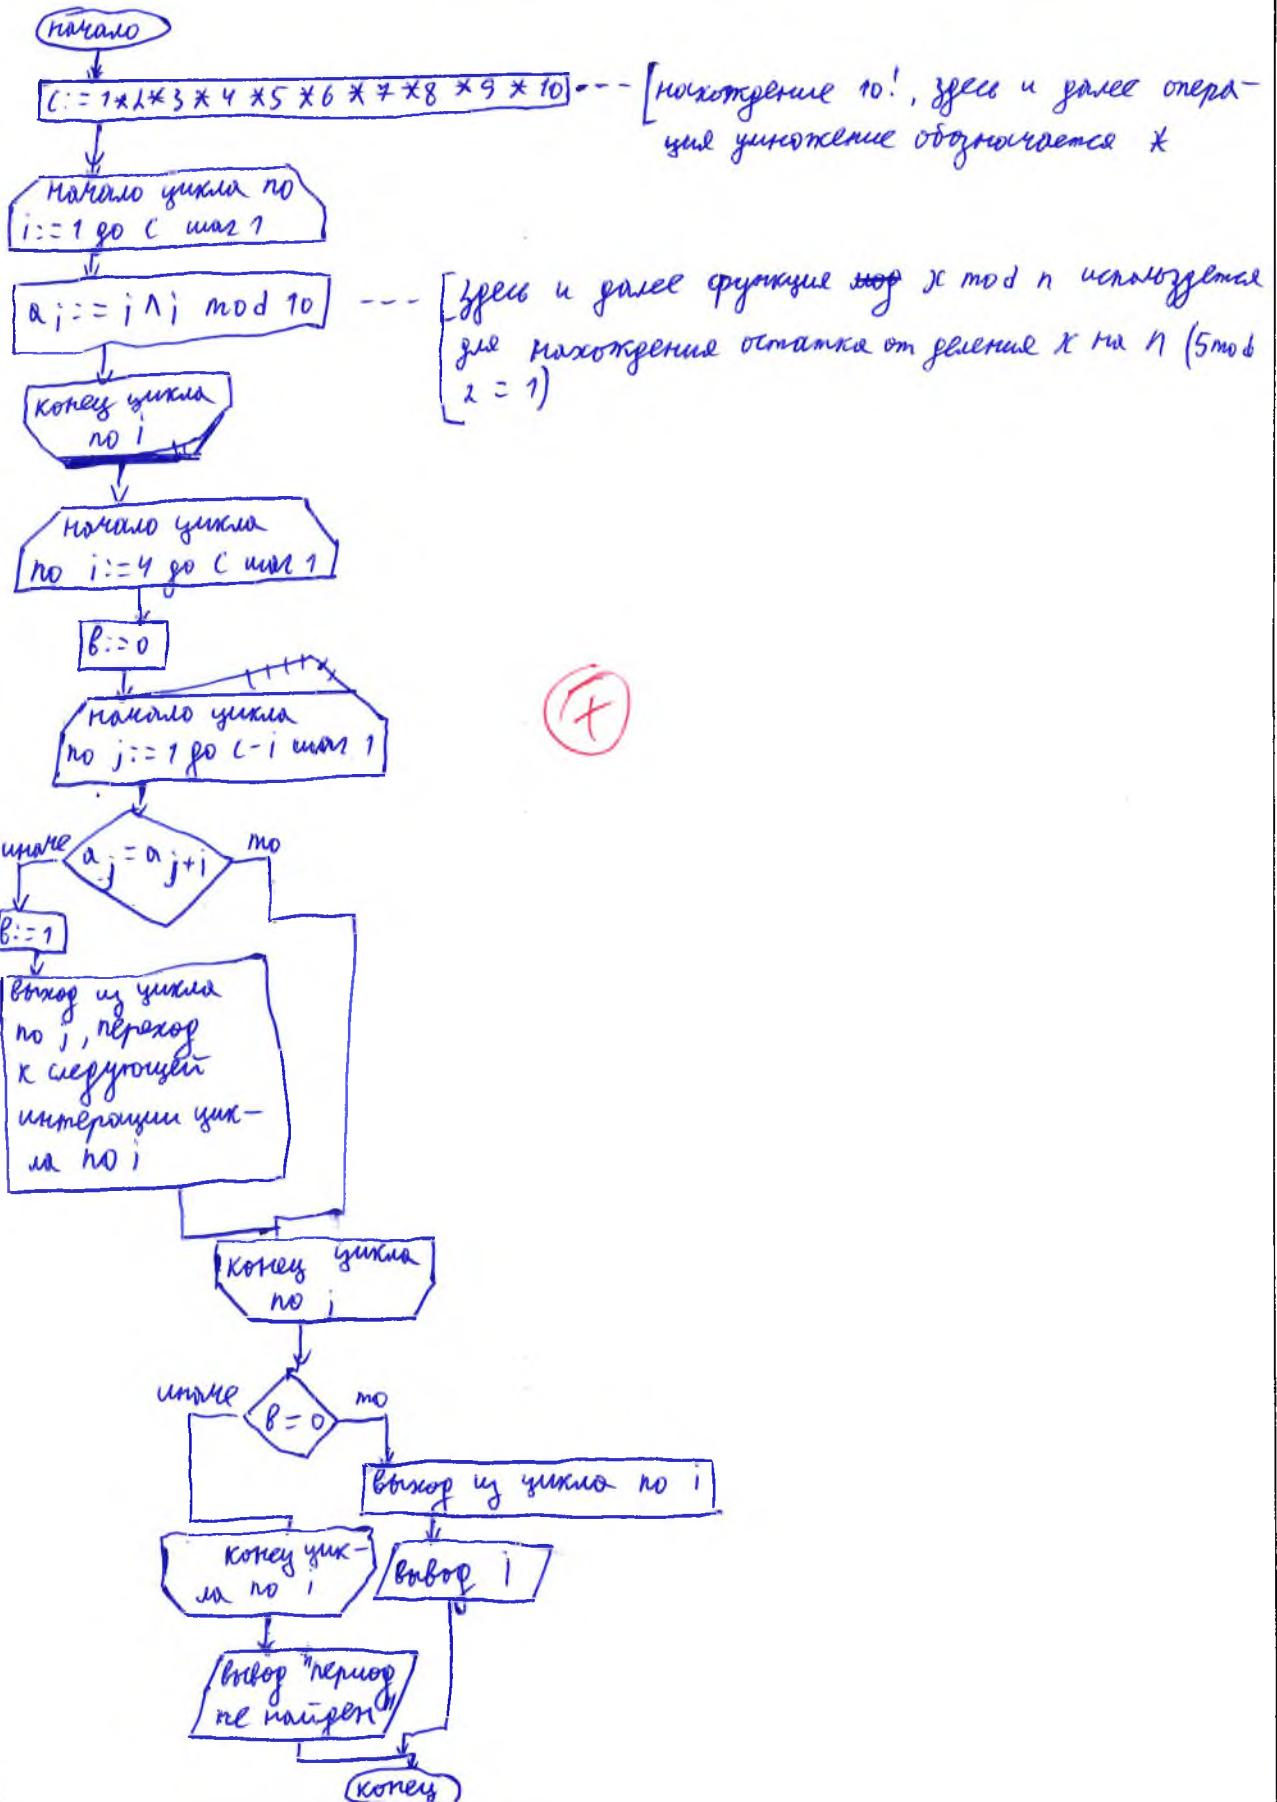 начало
C:=1*2*3*4*5*6*7*8*9*10
нахождение 10!, здесь и далее опера-
ция умножение обозначается *
начало цикла по
i:=1 до C шаг 1
a i:=i^i mod 10
здесь и далее функция x mod n используется
для нахождения остатка от деления x на n (5mod
2 = 1)
конец цикла
по i
начало цикла
по i:=4 до C шаг 1
b:=0
начало цикла
по j:=1 до C-i шаг 1
иначе
a j = a j+i
то
b:=1
выход из цикла
по j, переход
к следующей
интерации цик-
ла по i
конец цикла
по j
иначе
b=0
то
выход из цикла по i
конец цик-
ла по i
вывод i
вывод "период
не найден"
конец
+